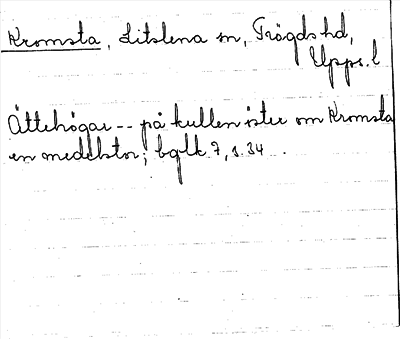 Kromsta, Litslena sn, Trögds hd,
Upps. l
Ättehögar -- på kullen öster om Kromsta
en medelstor; bglk 7, s. 34.